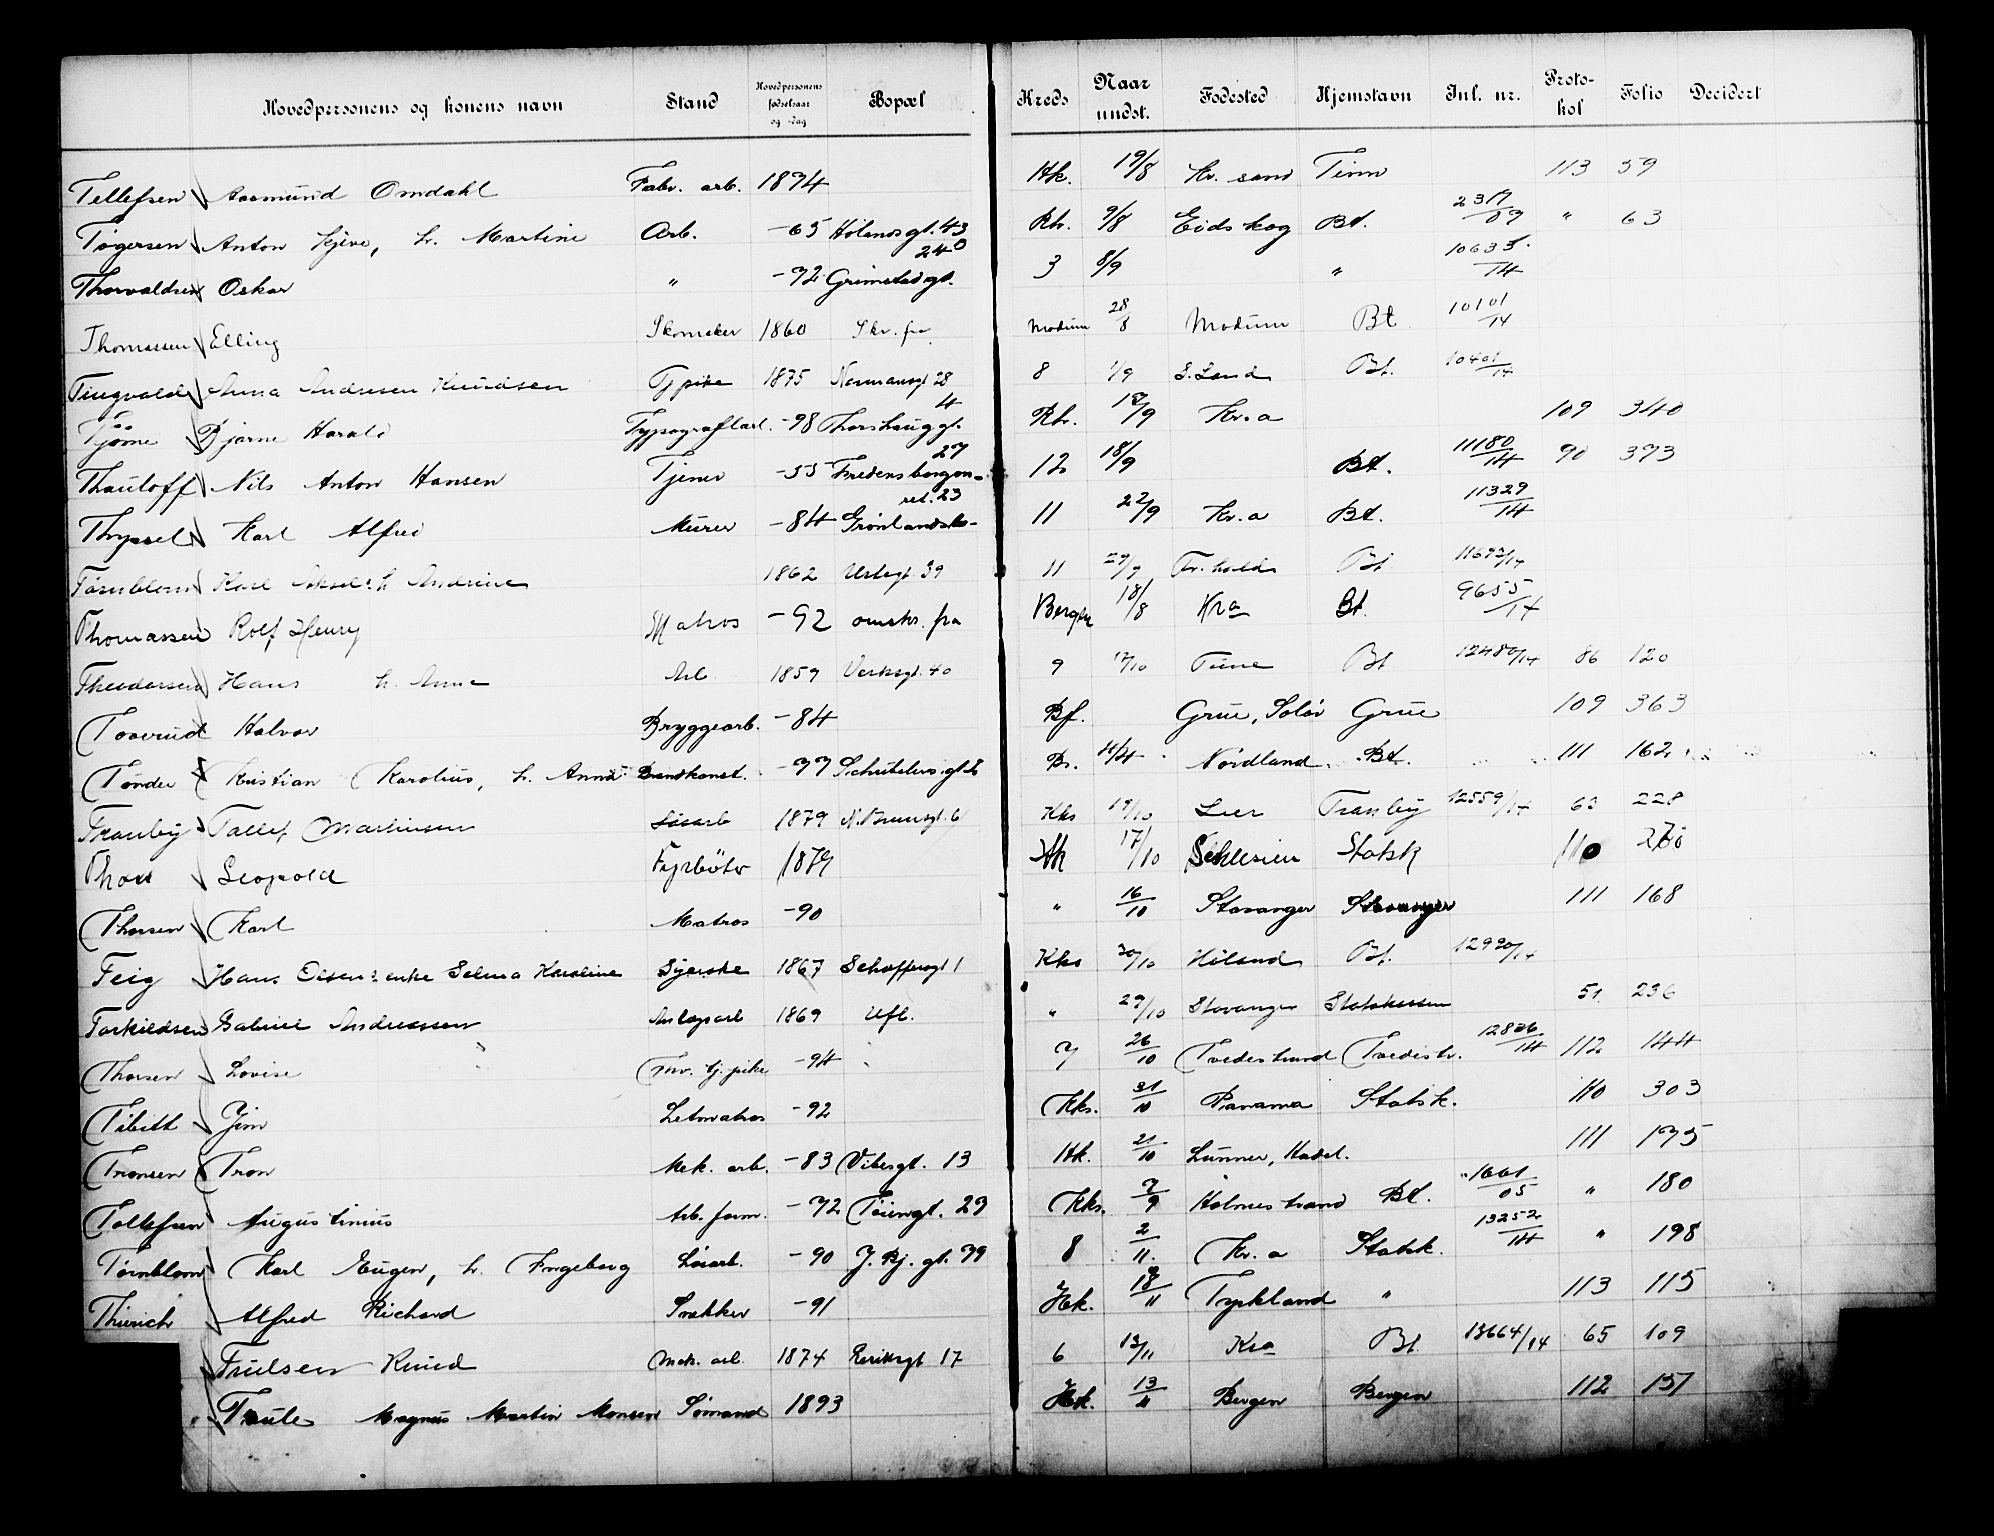 Hovedpersonens og konens navn Stand Hovedpersonens fødselsaar og -dag Bopæl Kreds Naar undst. Fødested Hjemstavn Inl. nr. Protokol Folio Decidert
Tellefsen Aasmund Omdahl Fabr. arb. 1874 Hk. 19/8 Kr. sand Tinn 113 59
Tøgersen Anton h. Martine Arb. -65 Holmsgt. 43 Rh. 9/8 Eidskog Bt. 2317/09 " 63
Thorvaldsen Oskar " -72 Grimstadgt. 24 3 8/9 " 10635/14
Thomassen Elling Skomaker 1860 Skr. fra Modum 28/8 Modum Bt. 10101/14
Tingvold Anna Andresen Knudsen Tj pike 1875 Normansgt 28 8 1/9 S. Land Bt. 10401/14
Tjøme Bjarne Harald Typograflærl. -98 Thorshauggt. 4 Rh. 17/9 Kr.a 109 340
Thauloff Nils Anton Hansen Tjener -55 Fredensborgv. 27 12 18/9 Bt. 11180/14 90 373
Thyssel Karl Alfred Murer -84 Grønlands- ret. 23 11 22/9 Kr.a Bt. 11329/14
Tørnblom Karl Aksel h Andrine 1862 Urtegt. 39 11 29/9 Fr. hald Bt 11693/14
Thomassen Rolf Henry Matros -92 omskr. fra Bergen 18/8 Kra Bt. 9655/14
Theodorsen Hans h. Anna Arb. 1859 Verksgt. 40 9 17/10 Tune Bt 12480/14 86 120
Toverud Halvor Bryggearb. -84 Bf. Grue, Solør Grue 109 363
Tønder Kristian Karolius, h. Anna Brandkonst. -77 Schübelersgt. Br. 4/4 Nordland Bt. 111 162
Tranby Tollef Martinsen Løsarb 1879 N. Brunsgt. 6 Kks 19/10 Lier Tranby 12559/14 63 228
Leopold Fyrbøter 1879 Hk 17/10 Schlesien Statsk 110
Thorsen Karl Matros -90 " 16/10 Stavanger Stavanger 111 168
Teig Hans Olsens enke Selma Karoline Syerske 1867 Schæffersgt 1 Kks 30/10 Høland Bt. 12930/14
Torkildsen Gabriel Andreassen Anlægsarb 1869 Ufl. " 29/10 Stavanger Statskassen 51. 236
Thorsen Lovise Fhv. tj. pike -94 7 26/10 Tvedestrand Tvedestr. 12836/14 112 144
Tibitt Jim Letmatros -92 Kks. 31/10 Panama Statsk. 110 303
Tronsen Tron Mek. arb. -83 Vibesgt. 13 Hk. 21/10 Lunner, Hadel. 111 175
Tollefsen Augustinius Arb. form. -72 Tøiengt. 29 Kks. 7/9 Holmestrand Bt. 1601/05 " 180
Tørnblom Karl Eugen, h. Ingeborg Løsarb. -90 J. Bj. gt. 79 8 2/11. Kr. a Statsk. 13252/14 " 198
Thierich Alfred Richard Snekker -91 Hk. 18/11 Tyskland " 113 115
Trulsen Knud Mek. arb. 1874 Eriksgt 17 6 13/11 Kra Bt. 13664/14 65 109
Traule Magnus Martin Monsen Sømand 1893 Hk. 13/11 Bergen Bergen 112 157